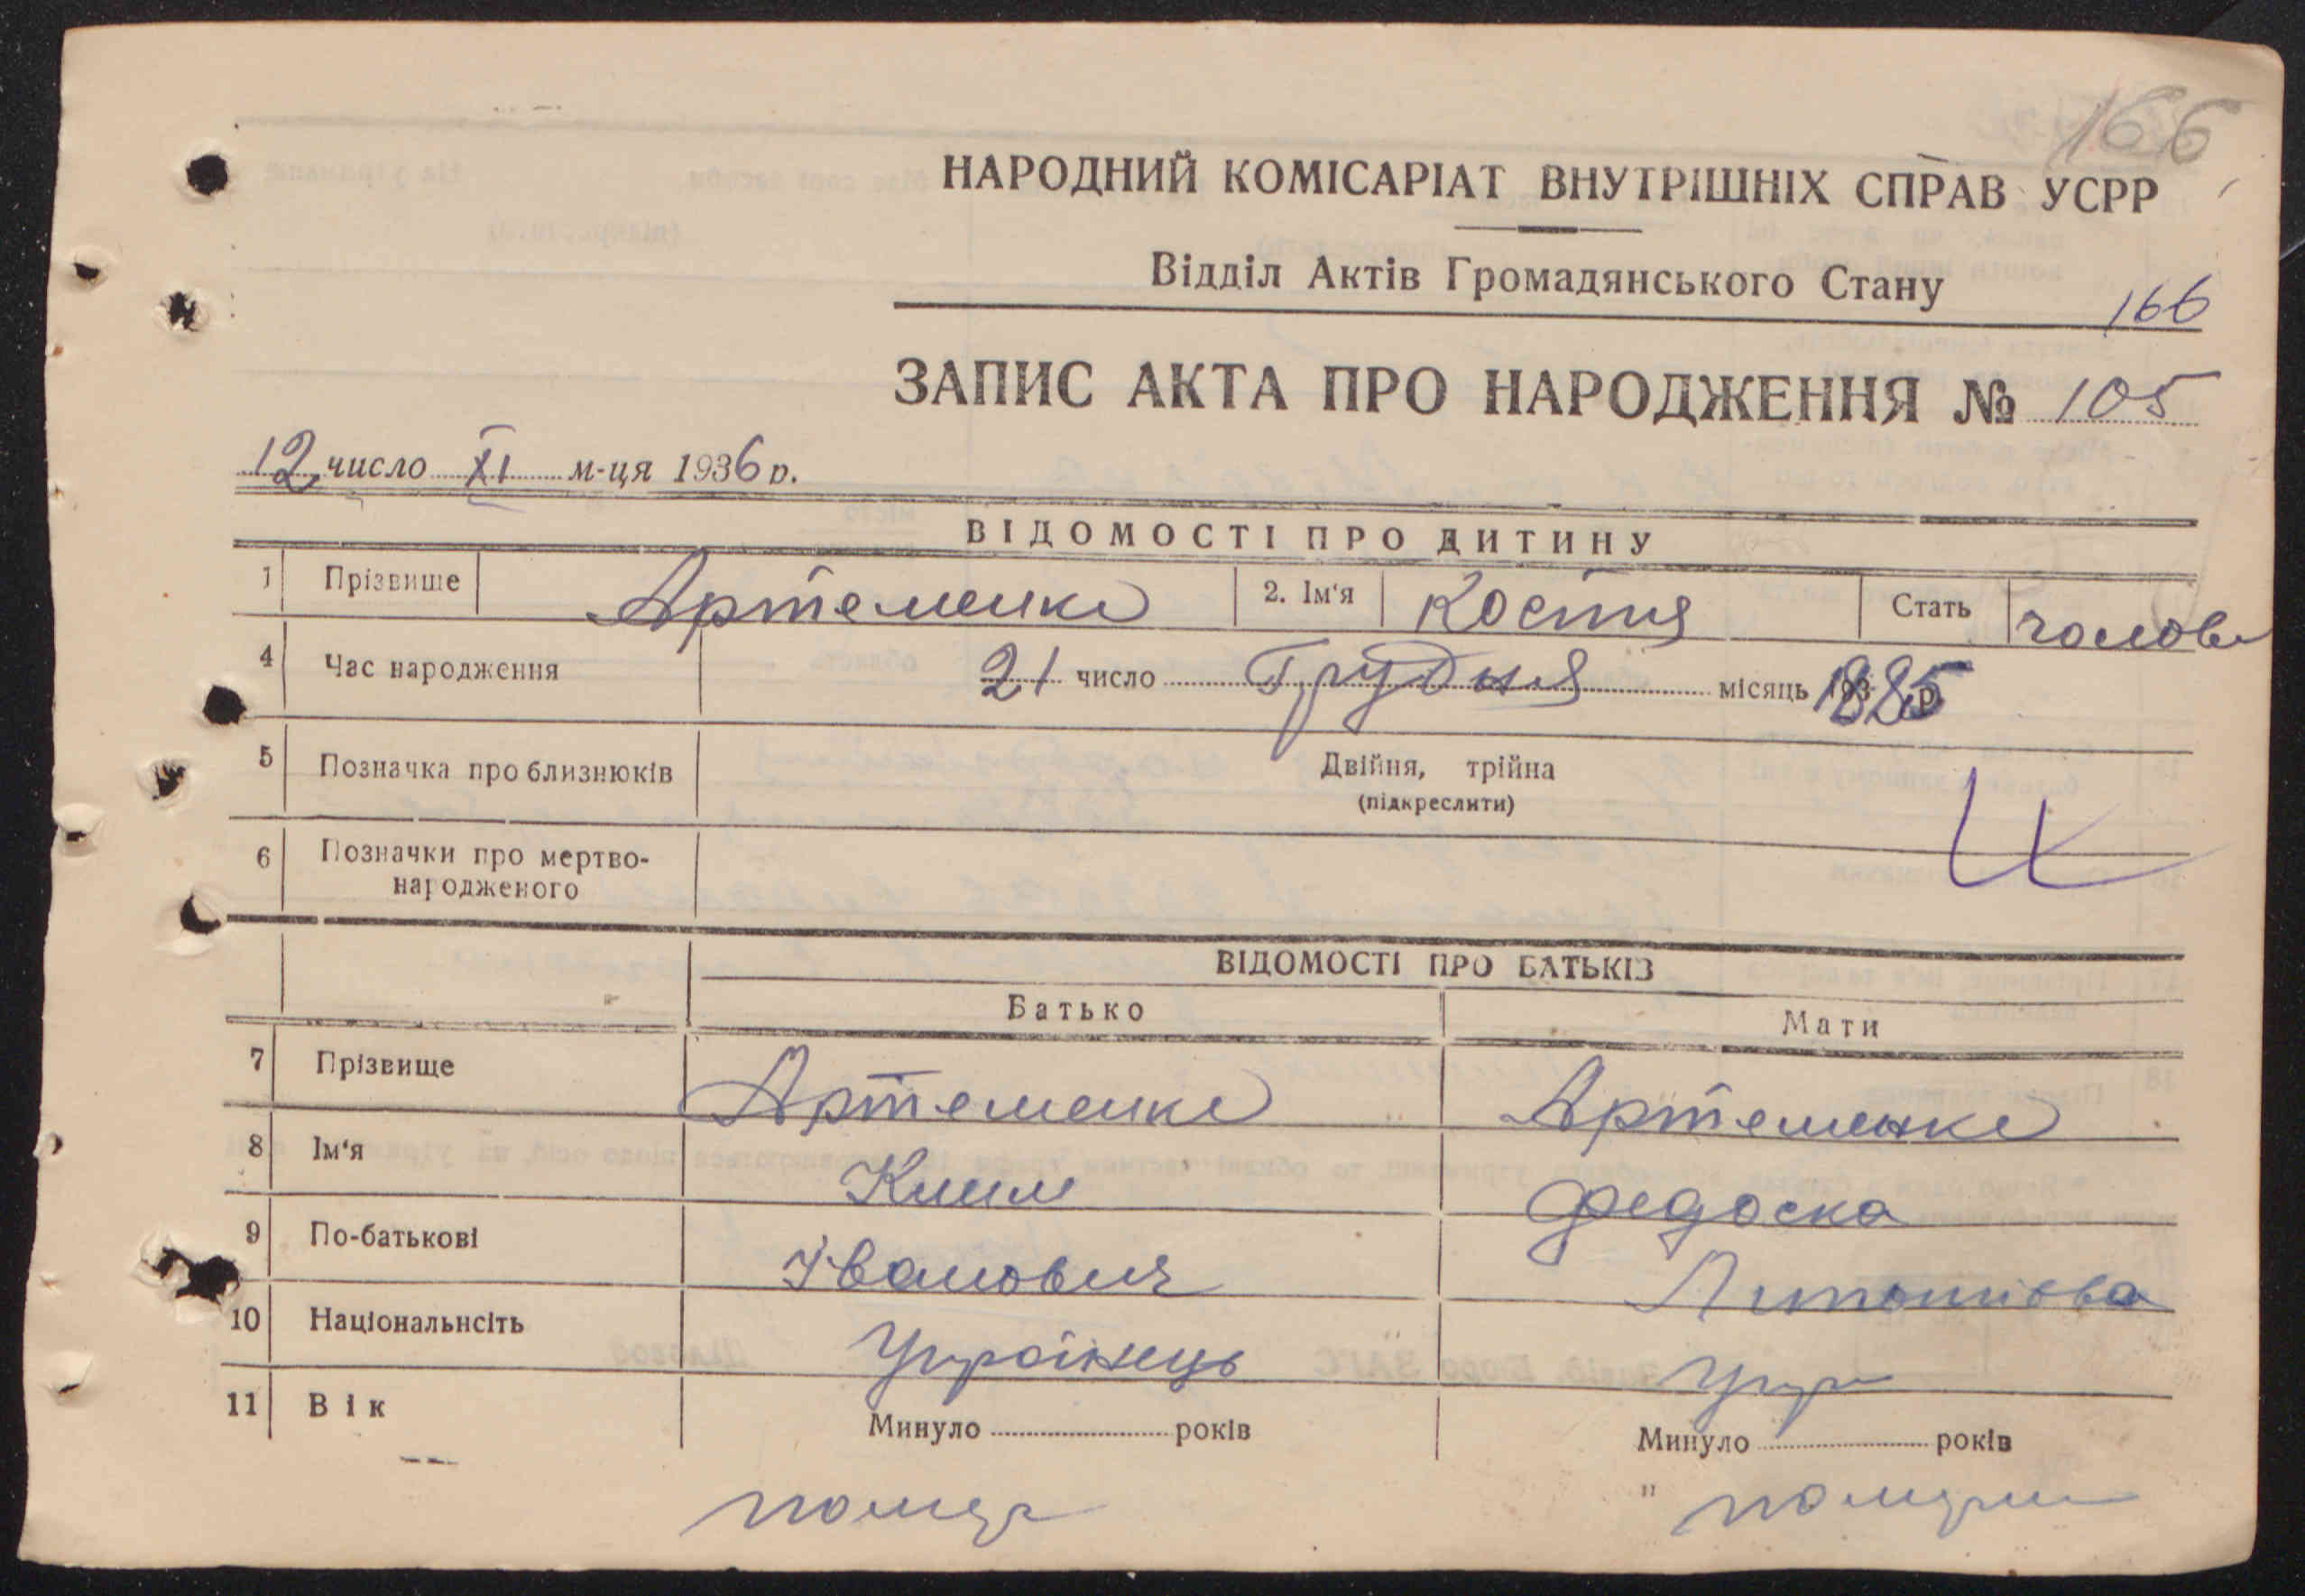 166
НАРОДНИЙ КОМІСАРІАТ ВНУТРІШНІХ СПРАВ УСРР
Відділ Актів Громадянського Стану
166
ЗАПИС АКТА ПРО НАРОДЖЕННЯ № 105
12 число XI м-ця 1936 р.
ВІДОМОСТІ ПРО ДИТИНУ
1 Прізвище Артеменко 2. Ім'я Костя Стать чолов
4 Час народження 21 число Грудня місяць 1885 р
5 Позначка про близнюків Двійня, трійна
(підкреслити)
6 Позначки про мертво-
народженого
ВІДОМОСТІ ПРО БАТЬКІВ
Батько Мати
7 Прізвище Артеменко Артеменко
8 Ім'я Клим Федоска
9 По-батькові Іванович
10 Національнсіть Українець Укр
11 Вік Минуло років Минуло років
помер " померли